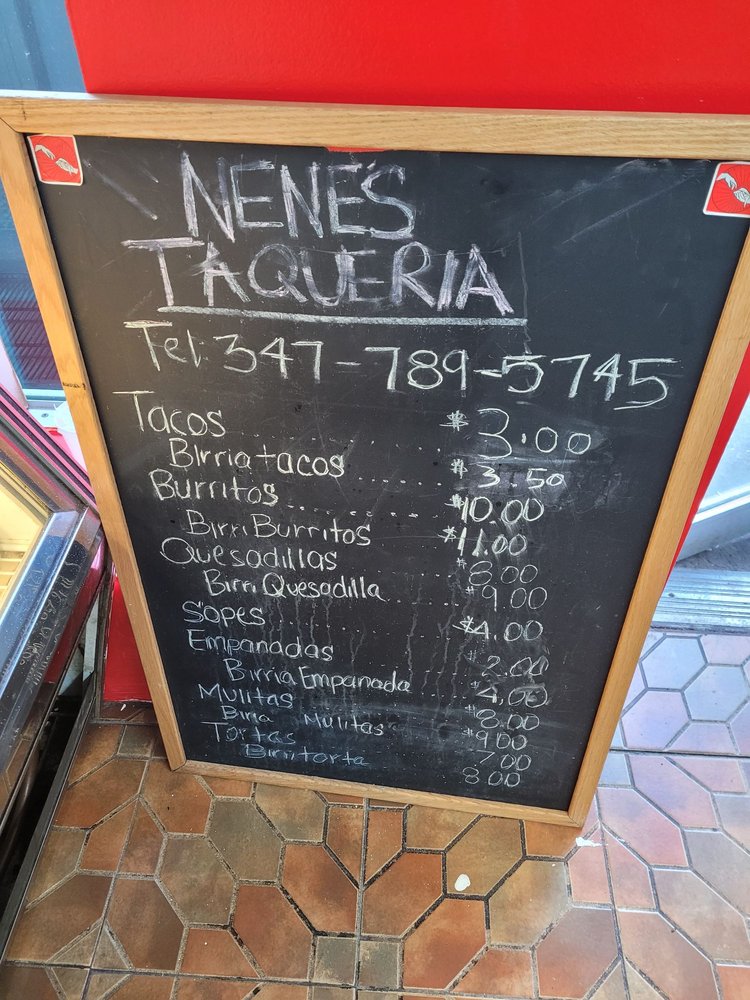 NENE'S
TAQUERIA
Tel: 347-789-5745
Tacos ........ $3.00
Birria tacos ...... $3.50
Burritos .......... $10.00
Birri Burritos ..... $11.00
Quesadillas ....... $8.00
Birri Quesadilla ..... $9.00
Sopes ........... $4.00
Empanadas ........ $2.00
Birria Empanada ... $4.00
Mulitas ......... $8.00
Birria Mulitas ..... $9.00
Tortas ........ 7.00
Birri torta 8.00